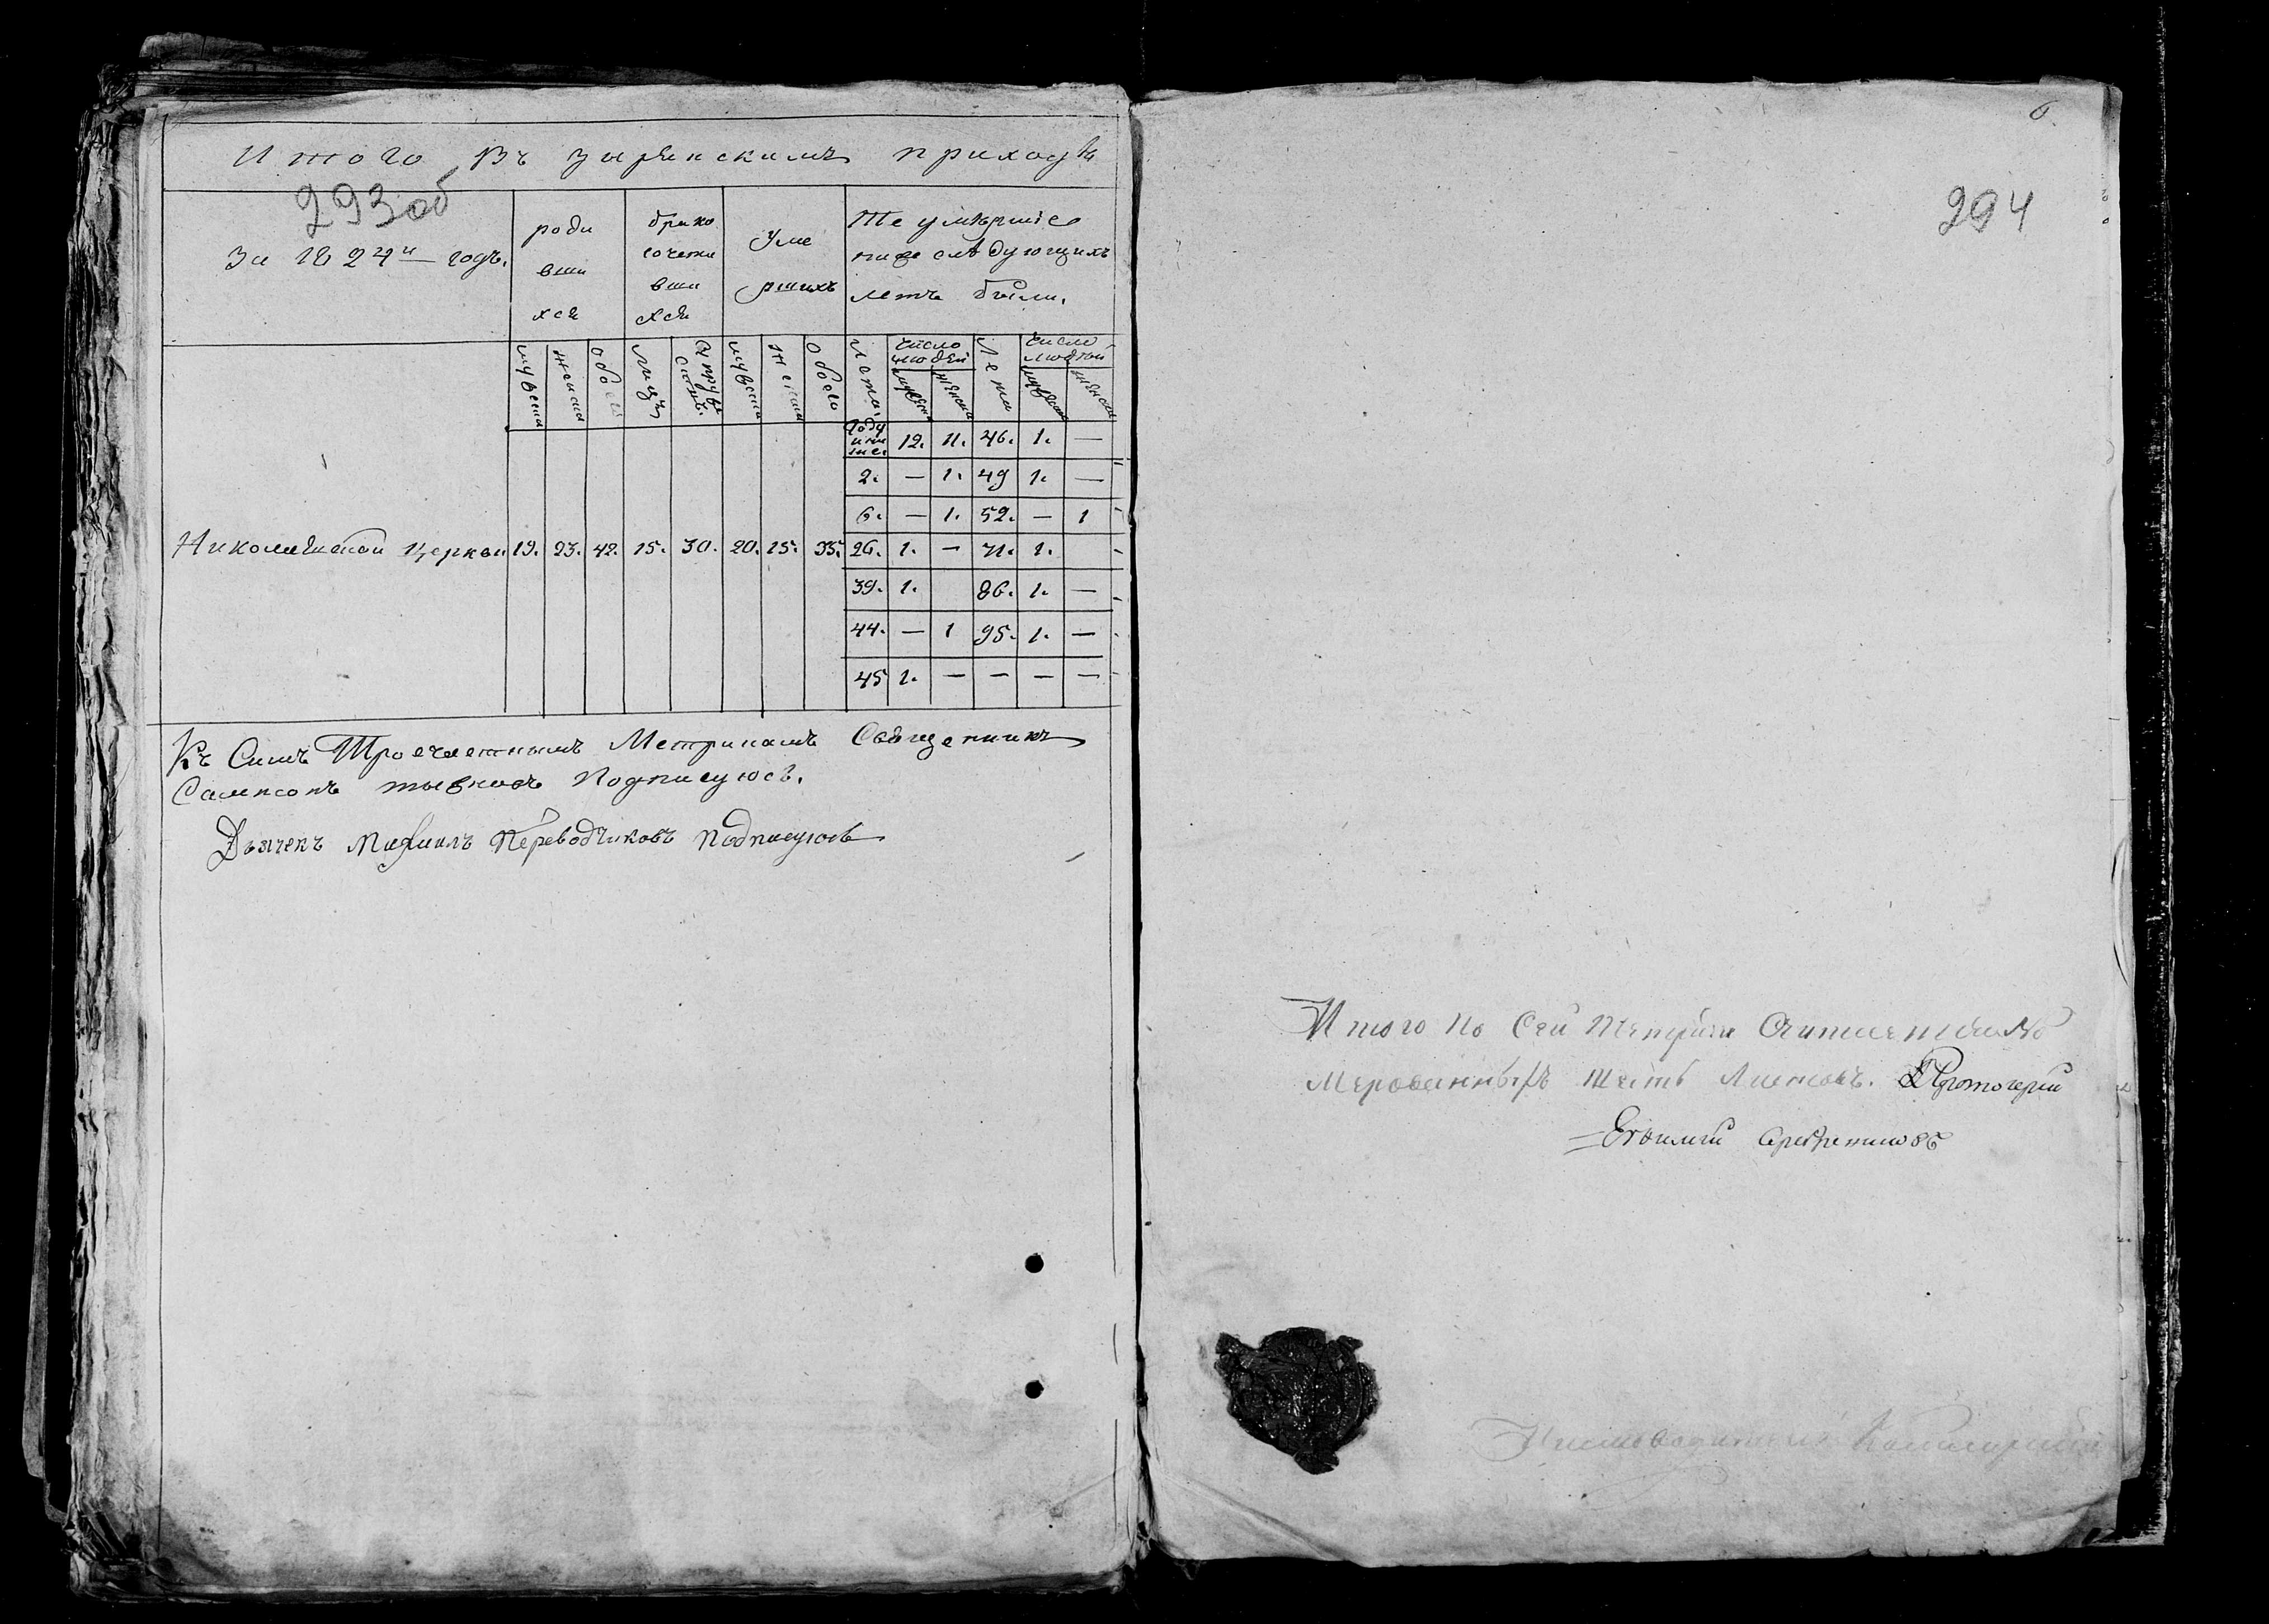 Итого Въ зырянскимъ приходѣ
293об
За 1824й годъ.
роди
вши
хся
брако
сочета
вши
хся
Уме
ршихъ
Те умѣршіе
ниже слѣдующихъ
летъ были.
мужеска
женска
обоего
лицъ
супруже
ствъ
мужеска
женска
обоего
Лета.
Число
людей
мужеска
женска
Лета
Число
людей
мужеска
женска
Году
и ни
же. 12. 11. 46. 1. —
2. — 1. 49 1. —
6. — 1. 52. — 1
Николаевской Церкви 19. 23. 42. 15. 30. 20. 15. 35. 26. 1. — 71. 1.
39. 1. 86. 1. —
44. — 1 95. 1. —
45 1. — — — —
Къ Симъ Троечастнымъ Метрикамъ Священникъ
Сампсонъ Подписуюсь.
Дьячекъ Михаилъ Переводчиковъ Подписуюсь
6.
294
Итого по Сей Метрики Скрепленно
Мерованныхъ шесть Листовъ. Протоіерей
Евфимій